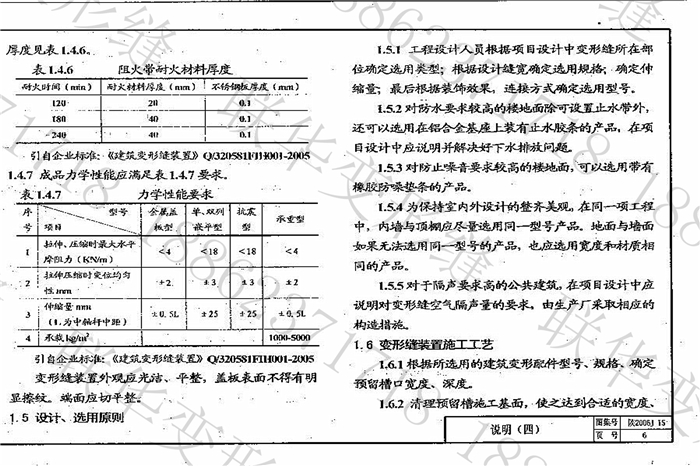 厚度见表1.4.6。
表1.4.6 阻火带耐火材料厚度
耐火时间(min) 耐火材料厚度(mm) 不锈钢板厚度(mm)
120 20 0.1
180 40 0.1
240 40 0.1
引自企业标准:《建筑变形缝装置》Q/320581FJH001-2005
1.4.7 成品力学性能应满足表1.4.7要求。
表1.4.7 力学性能要求
序号 型号 项目 金属盖板型 单、双列嵌平型 抗震型 承重型
1 拉伸、压缩时最大水平摩阻力(KN/m) <4 <18 <18 <4
2 拉伸压缩时变位均匀性mm ±2 ±3 ±3 ±2
3 伸缩量mm (L为中轴杆中距) ±0.5L ±25 ±25 ±0.5L
4 承载kg/m² 1000-5000
引自企业标准:《建筑变形缝装置》Q/320581FJH001-2005
变形缝装置外观应光洁、平整,盖板表面不得有明
显擦纹。端面应切平整。
1.5 设计、选用原则
1.5.1 工程设计人员根据项目设计中变形缝所在部
位确定选用类型;根据设计缝宽确定选用规格;确定伸
缩量;最后根据装饰效果,连接方式确定选用型号。
1.5.2 对防水要求较高的楼地面除可设置止水带外,
还可以选用在铝合金基座上装有止水胶条的产品,在项
目设计中应说明并解决好下水排放问题。
1.5.3 对防止噪音要求较高的楼地面,可以选用带有
橡胶防噪垫条的产品。
1.5.4 为保持室内外设计的整齐美观,在同一项工程
中,内墙与顶棚应尽量选用同一型号产品。地面与墙面
如果无法选用同一型号的产品,也应选用宽度和材质相
同的产品。
1.5.5 对于隔声要求高的公共建筑,在项目设计中应
说明对变形缝空气隔声量的要求。由生产厂采取相应的
构造措施。
1.6 变形缝装置施工工艺
1.6.1 根据所选用的建筑变形配件型号、规格、确定
预留槽口宽度、深度。
1.6.2 清理预留槽施工基面,使之达到合适的宽度、
说明(四) 图集号 陕2006J 15
页号 6
联华变形缝 18862371718